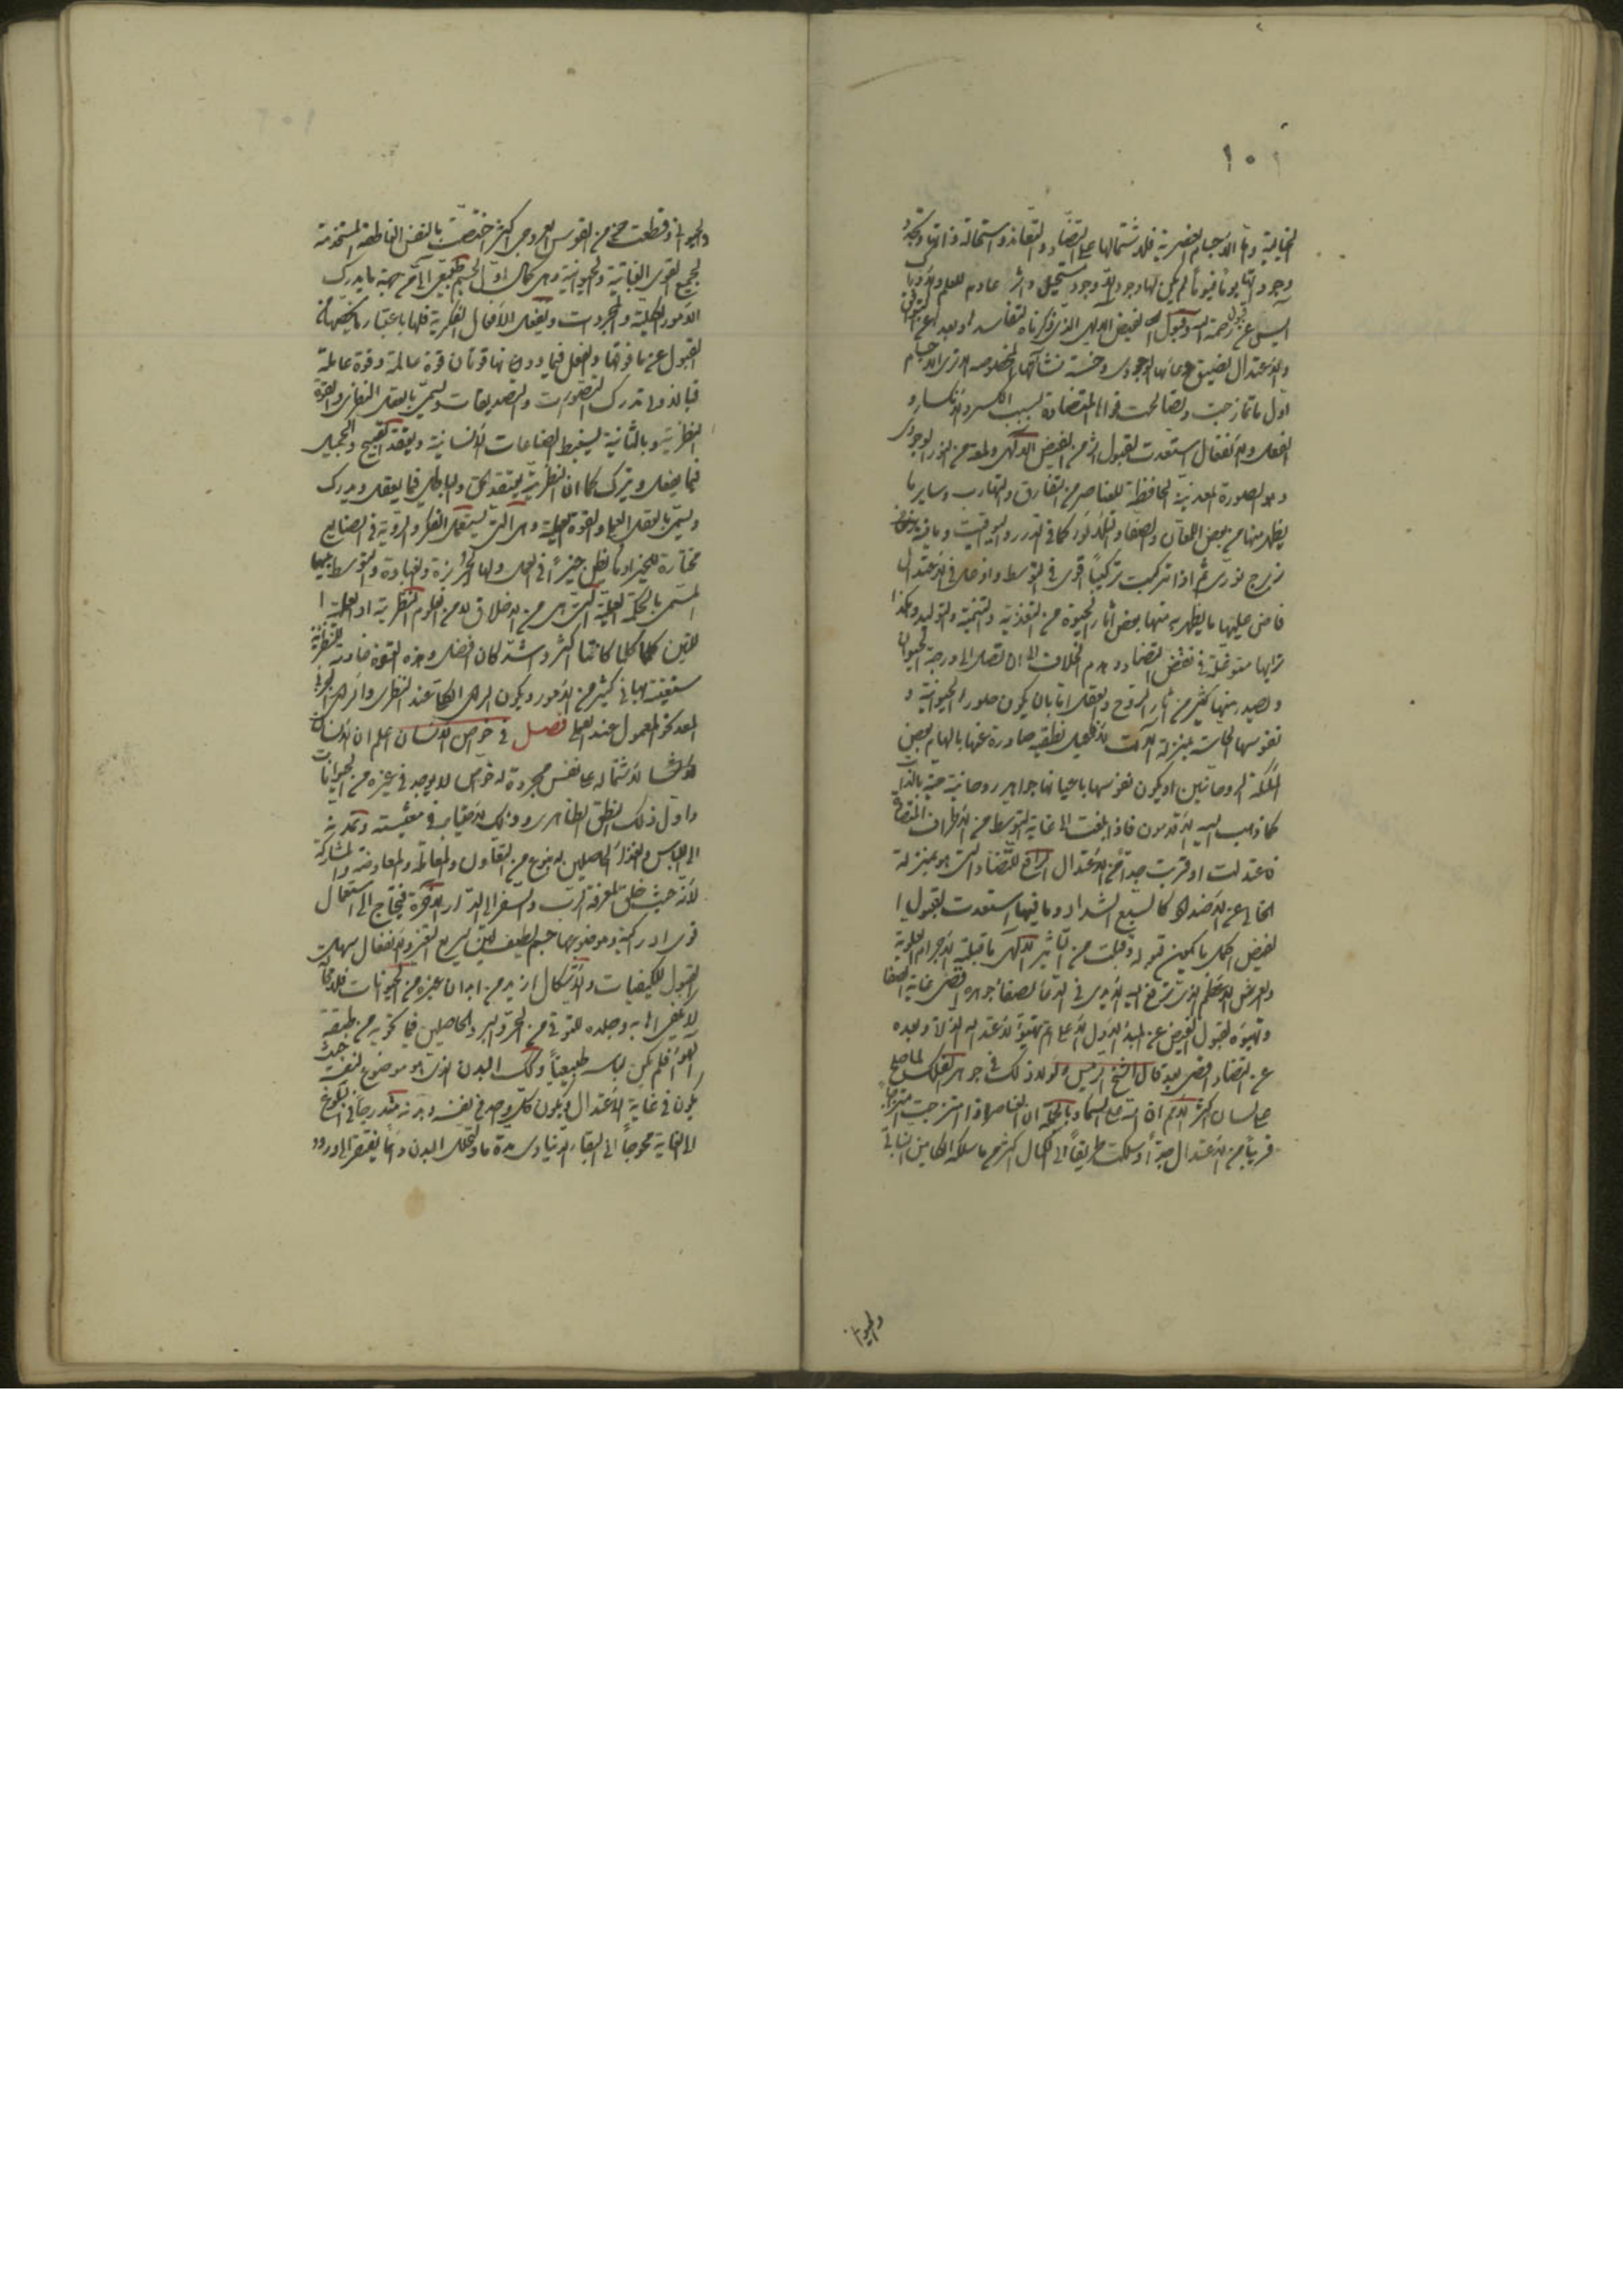 ١٠١
الخيالية واما الاجسام العنصرية فلاشتمالها على التضاد والتفاسد واستحالة ذاتها وتجدد
وجودها يوما فيوما لم يكن لها وجود الا وجود مستحيل واثر عادم للعلم والادراك
والاعتدال لضيق وعائها الوجودي وخسة نشأتها المخصوصة الا ترى ان الاجسام
اول ما تمازجت وتصالحت قواها المتضادة بسبب الكسر والانكسار و
الفعل والانفعال استعدت لقبول اثر من الفيض الالهي ولمعة من النور الوجودي
وهو الصورة المعدنية الحافظة للعناصر من التفارق والتهارب وساير ما
يظهر منها من بعض اللمعان والصفاء والتلألؤ كما في الدرر واليواقيت وما فيه
ثم اذا تركبت تركيبا اقوى في التوسط وادخل في الاعتدال
فاض عليها ما يظهر به منها بعض آثار الحيوة من التغذية والتنمية والتوليد وهكذا
ترايها متوغلة في نقض التضاد وهدم الخلاف الى ان تصل الى درجة الحيوان
وتصدر منها كثير من آثار الروح والعقل اما بان يكون صور الحيوانية و
نفوسها الحاسة بمنزلة آلات لافاعيل نطقية صادرة عنها بالهام بعض
الملئكة الروحانيين او يكون نفوسها باعيانها جواهر روحانية حية بالذات
كما ذهب اليه الاقدمون فاذا بلغت الى غاية التوسط من الاطراف المتضادة
فاعتدلت او قربت جدا من الاعتدال الرافع للتضاد الذي هو بمنزلة
الخالي عن الاضداد كالسبع الشداد وما فيها استعدت لقبول ا
لفيض اكمل ما يمكن قبوله وقبلت من التأثير الالهي ما قبلته الاجرام العلوية
والعرش الاعظم الذي تشرف اليه الايدي في الدعاء لصفاء جوهره اقصى غاية الصفا
وتهيؤه لقبول الفيض عن المبدء الاول الاعلى اتم تهيؤ لاعتداله الذاتي وبعده
عن التضاد اقصى بعد قال الشيخ الرئيس ولولا ذلك في جوهر الفلك لما صلح
على لسان اكثر الامم ان الله على السماء وبالجملة ان العناصر اذا امتزجت امتزاجا
قريبا من الاعتدال جدا وسلكت طريقا الى الكمال اكثر مما سلكه الكاين النباتي
والحيواني
والحيواني وقطعت من القوس العروجي اكثر اختصت بالنفس الناطقة المستخدمة
لجميع القوى النباتية والحيوانية وهي كمال اول لجسم طبيعي آلي من جهة ما يدرك
الامور الكلية والمجردات ويفعل الافعال الفكرية فلها باعتبار ما يخصها من
القبول عن ما فوقها والفعل فيما دونها قوتان قوة عالمة وقوة عاملة
فبالاولى تدرك التصورات والتصديقات وتسمى بالعقل النظري والقوة
النظرية وبالثانية يستنبط الصناعات الانسانية ويعتقد القبيح والجميل
فيما يفعل ويترك كما ان النظرية يعتقد الحق والباطل فيما يعقل ويدرك
وتسمى بالعقل العملي والقوة العملية وهي التي تستعمل الفكر والروية في الصنايع
مختارة للخير او ما يظن خيرا في العمل ولها الجربزة والغباوة والتوسط بينهما
المسمى بالحكمة العملية التي هي من الاخلاق لا من العلوم النظرية او العملية ا
للتين كلما كانتا اكثر واشد كان افضل وهذه القوة خادمة للنظرية
مستعينة بها في كثير من الامور ويكون الراي الكلي عند النظري والراي الجزئي
المعد نحو المعمول عند العملي فصل في خواص الانسان اعلم ان الانسان
لاشتماله على نفس مجردة له خواص لا يوجد في غيره من الحيوانات
واول ذلك النطق الظاهري وذلك لاحتياجه في معيشته وتمدنه
الى اللباس والغذاء الحاصلين بنوع من التعاون والمعاملة والمعاوضة والمشاركة
لانه حيث خلق لمعرفة الرب والسفر الى الدار الآخرة فيحتاج الى استعمال
قوى ادراكية وموضوعها جسم لطيف لين سريع التغير والانفعال سهلة
القبول للكيفيات والاشكال ازيد من ابدان غيره من الحيوانات فلا محالة
لا يكتفي اهابه وجلده للتوقي من الحر والبرد الحاصلين فيما تحويه من طبقة
الهواء فلم يكن لباسه طبيعيا وذلك البدن الذي هو موضوع لنفسه حيث
يكون في غاية الاعتدال ويكون كل واحد من نفسه وبدنه متدرجا في البلوغ
الى الغاية محوجا الى البقاء الدنياوي مدة ما ولتحلل البدن دائما يفتقر الى ورود